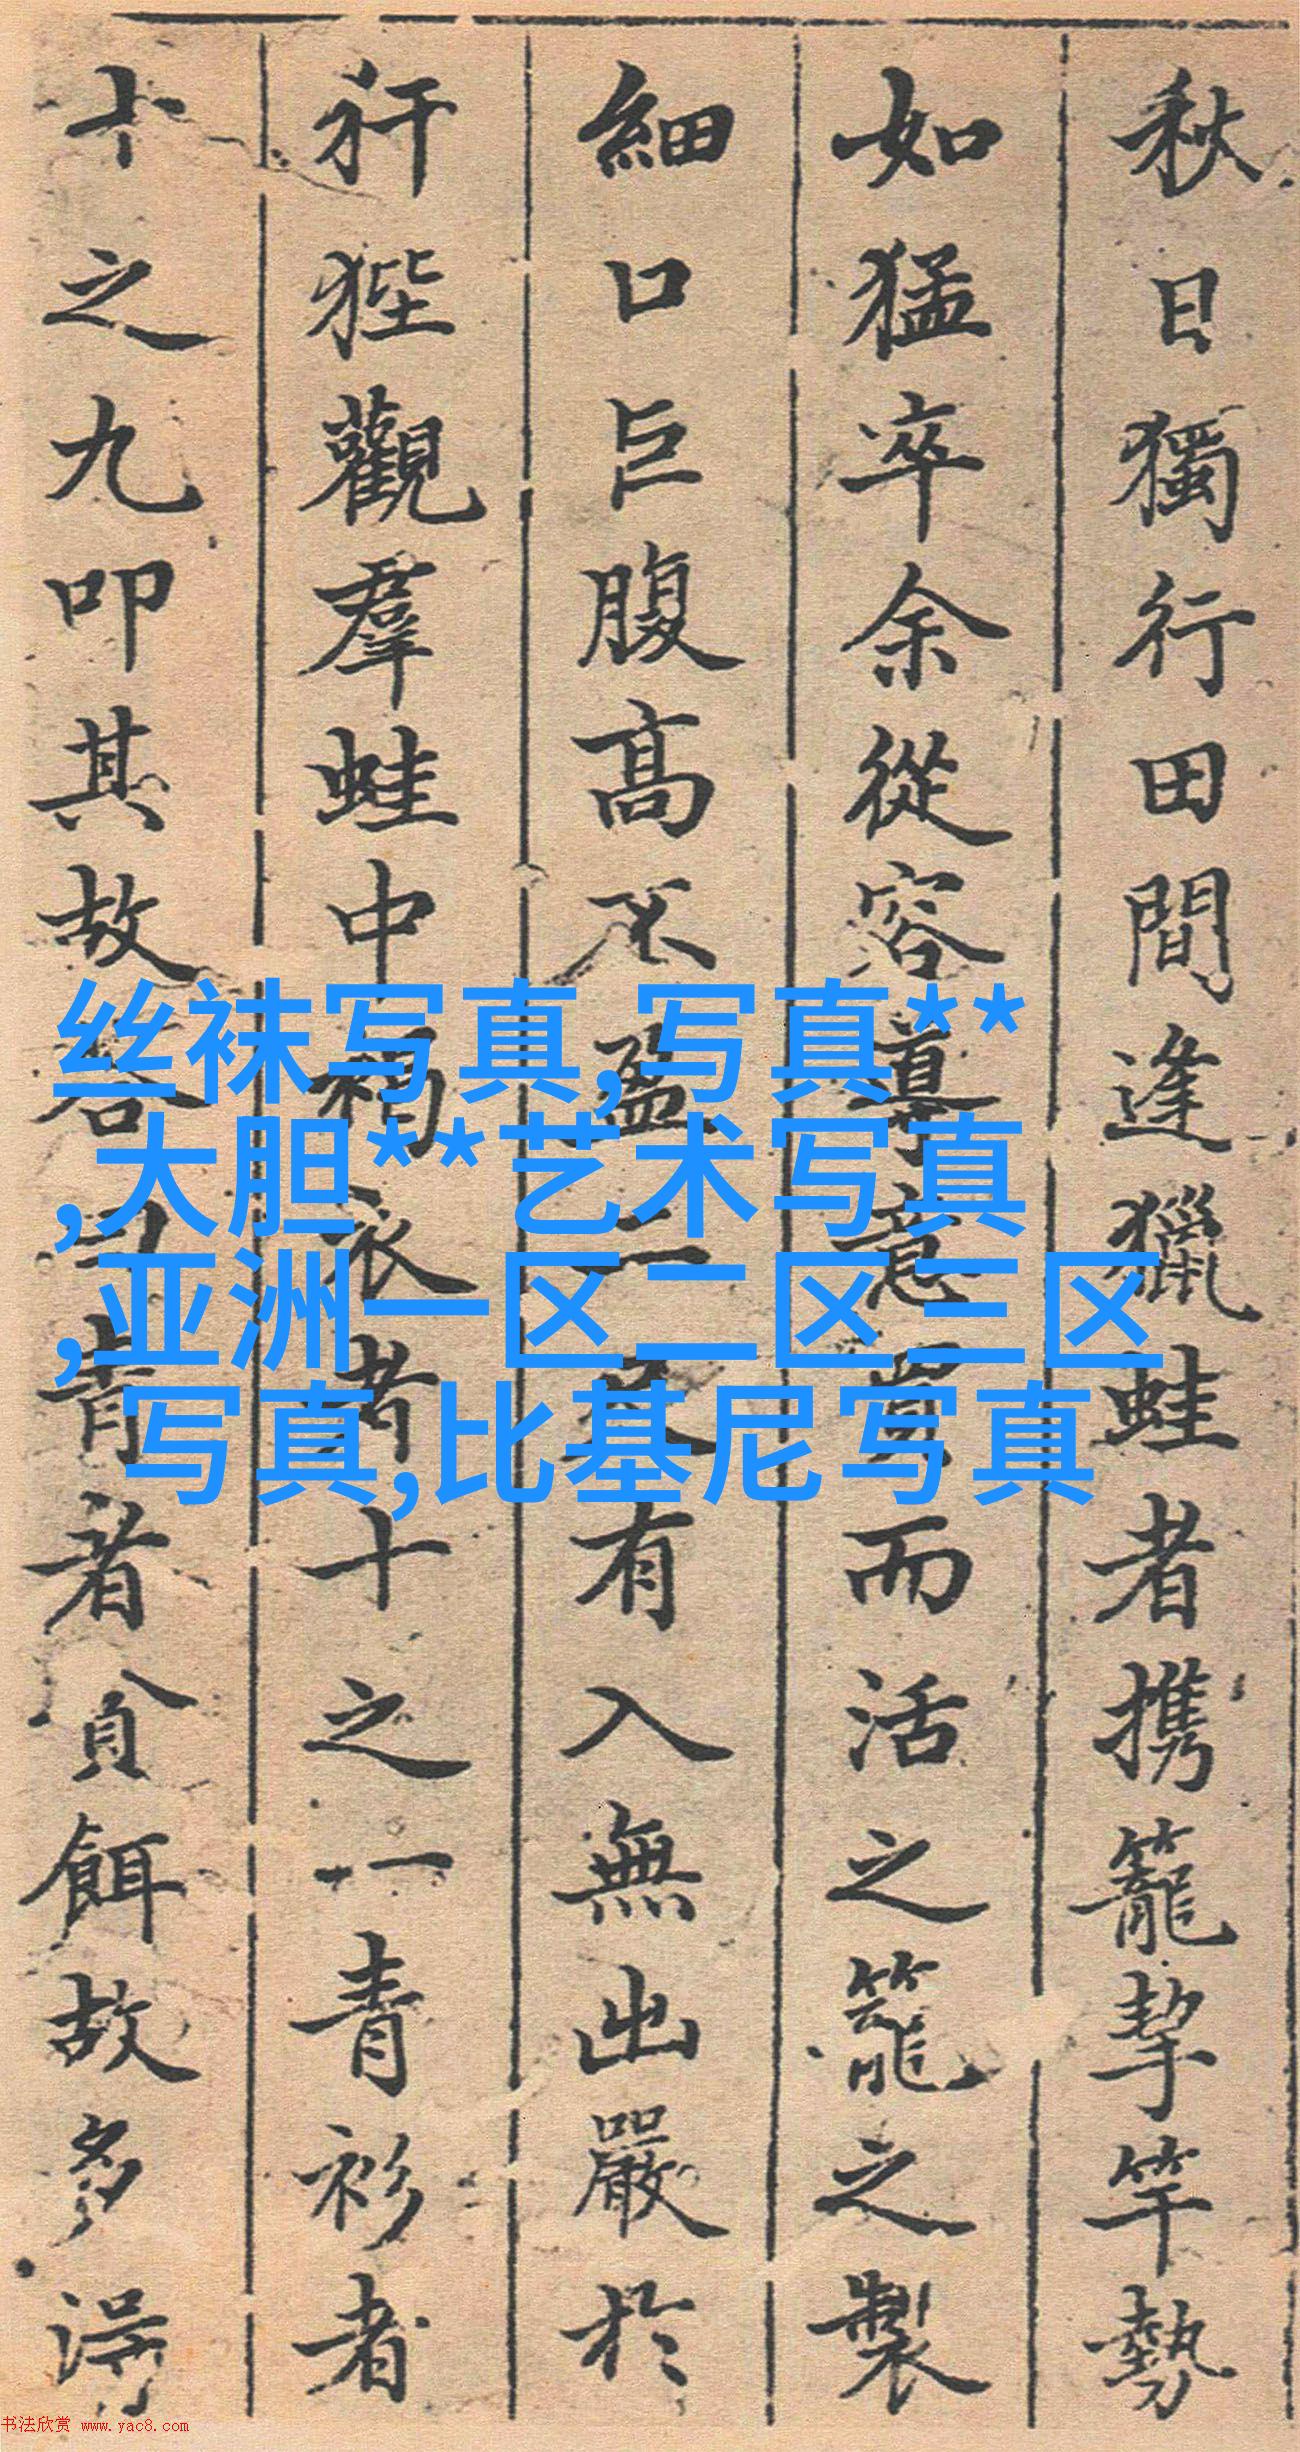 秋日獨行田間逢獵蛙者携籠挈竿勢
如猛卒余從容導意買而活之籠之製
細口巨腹高不盈二尺有入無出嚴於
犴狴觀羣蛙中褐衣者十之一青衫者
十之九叩其故答曰青者貪餌故多得
丝袜写真,写真**
,大胆**艺术写真
,亚洲一区二区三区
写真,比基尼写真
书法欣赏 www.yac8.com